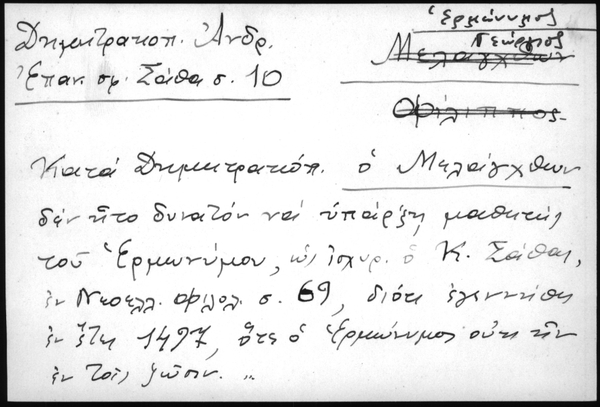 Δημητρακοπ. Ἀνδρ.
Ἐπαν. σφ. Σάθα σ. 10
Ἑρμώνυμος
Γεώργιος
Μελάγχθων
Φίλιππος
Κατά Δημητρακόπ. ὁ Μελάγχθων
δέν ἦτο δυνατόν νά ὑπάρξῃ μαθητής
τοῦ Ἑρμωνύμου, ὡς ἰσχυρ. ὁ Κ. Σάθας,
ἐν Νεοελλ. Φιλολ. σ. 69, διότι ἐγεννήθη
ἐν ἔτει 1497, ὅτε ὁ Ἑρμώνυμος οὔτε ἦν
ἐν τοῖς ζῶσιν. ...